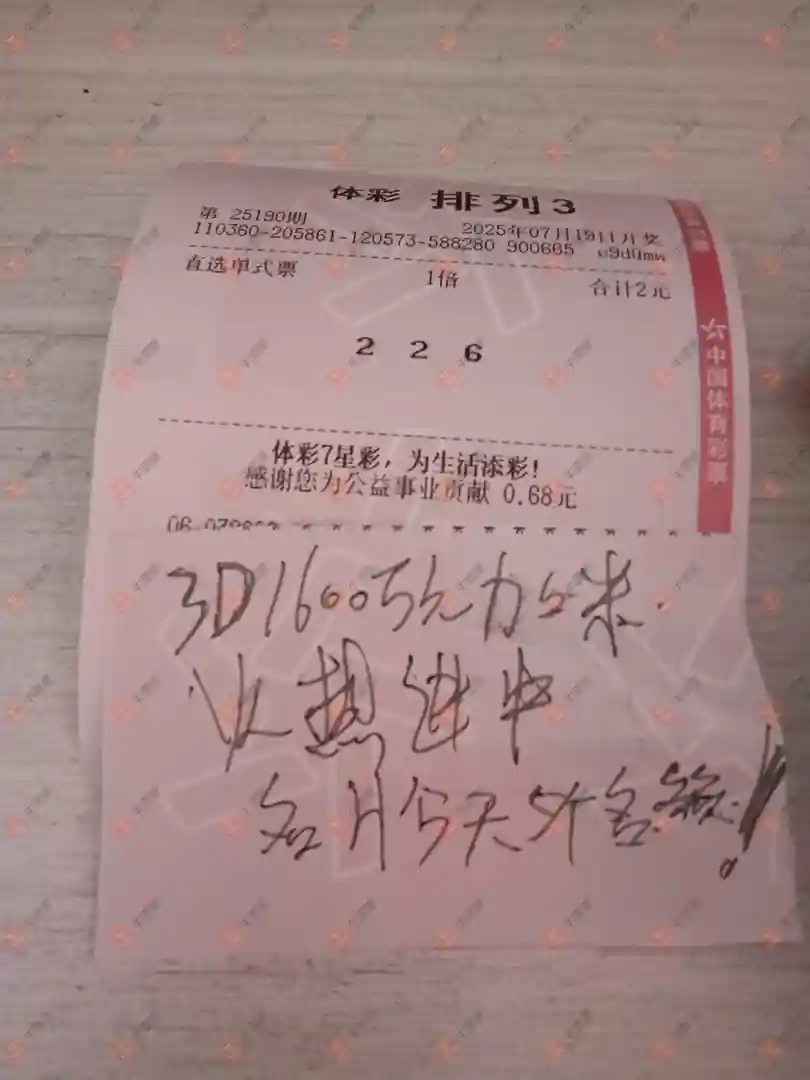 体彩 排列3
第 25190期 2025年07月19日开奖
110360-205861-120573-588280 900665
直选单式票 1倍 合计2元
2 2 6
体彩7星彩，为生活添彩！
感谢您为公益事业贡献 0.68元
中国体育彩票
3D1600万元加
火热进中
今天